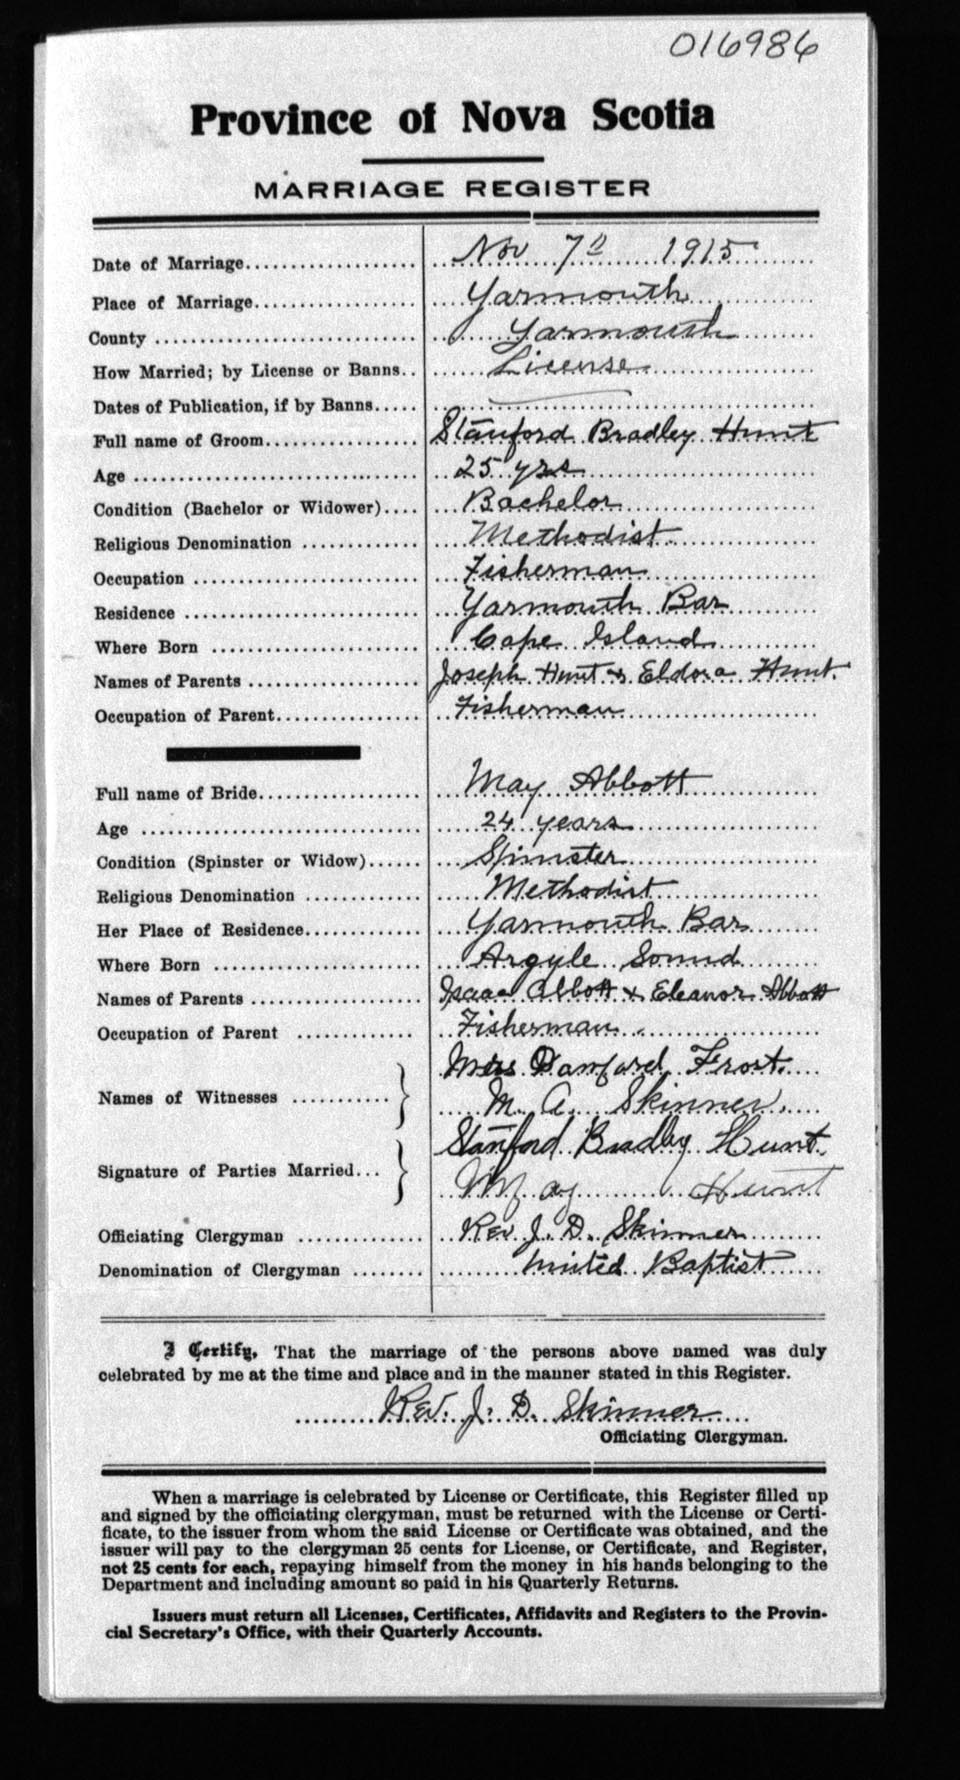 016986
Province of Nova Scotia
MARRIAGE REGISTER
Date of Marriage.................... Nov 7th 1915
Place of Marriage................... Yarmouth
County ............................. Yarmouth
How Married; by License or Banns.. License
Dates of Publication, if by Banns.....
Full name of Groom.................. Stanford Bradley Hunt
Age ................................ 25 yrs
Condition (Bachelor or Widower).... Bachelor
Religious Denomination ............. Methodist
Occupation ......................... Fisherman
Residence .......................... Yarmouth Bar
Where Born ......................... Cape Island
Names of Parents ................... Joseph Hunt & Eldora Hunt.
Occupation of Parent................ Fisherman
Full name of Bride.................. May Abbott
Age ................................ 24 years
Condition (Spinster or Widow)...... Spinster
Religious Denomination ............. Methodist
Her Place of Residence............. Yarmouth Bar
Where Born ......................... Argyle Sound
Names of Parents ................... Isaac Abbott & Eleanor Abbott
Occupation of Parent ............. Fisherman
Names of Witnesses ........... Mrs Danford Frost.
M. A. Skinner.
Signature of Parties Married... Stanford Bradley Hunt.
May Hunt
Officiating Clergyman .............. Rev J. D. Skinner
Denomination of Clergyman ........ United Baptist
I Certify, That the marriage of the persons above named was duly
celebrated by me at the time and place and in the manner stated in this Register.
Rev. J. D. Skinner
Officiating Clergyman.
When a marriage is celebrated by License or Certificate, this Register filled up
and signed by the officiating clergyman, must be returned with the License or Certi-
ficate, to the issuer from whom the said License or Certificate was obtained, and the
issuer will pay to the clergyman 25 cents for License, or Certificate, and Register,
not 25 cents for each, repaying himself from the money in his hands belonging to the
Department and including amount so paid in his Quarterly Returns.
Issuers must return all Licenses, Certificates, Affidavits and Registers to the Provin-
cial Secretary's Office, with their Quarterly Accounts.